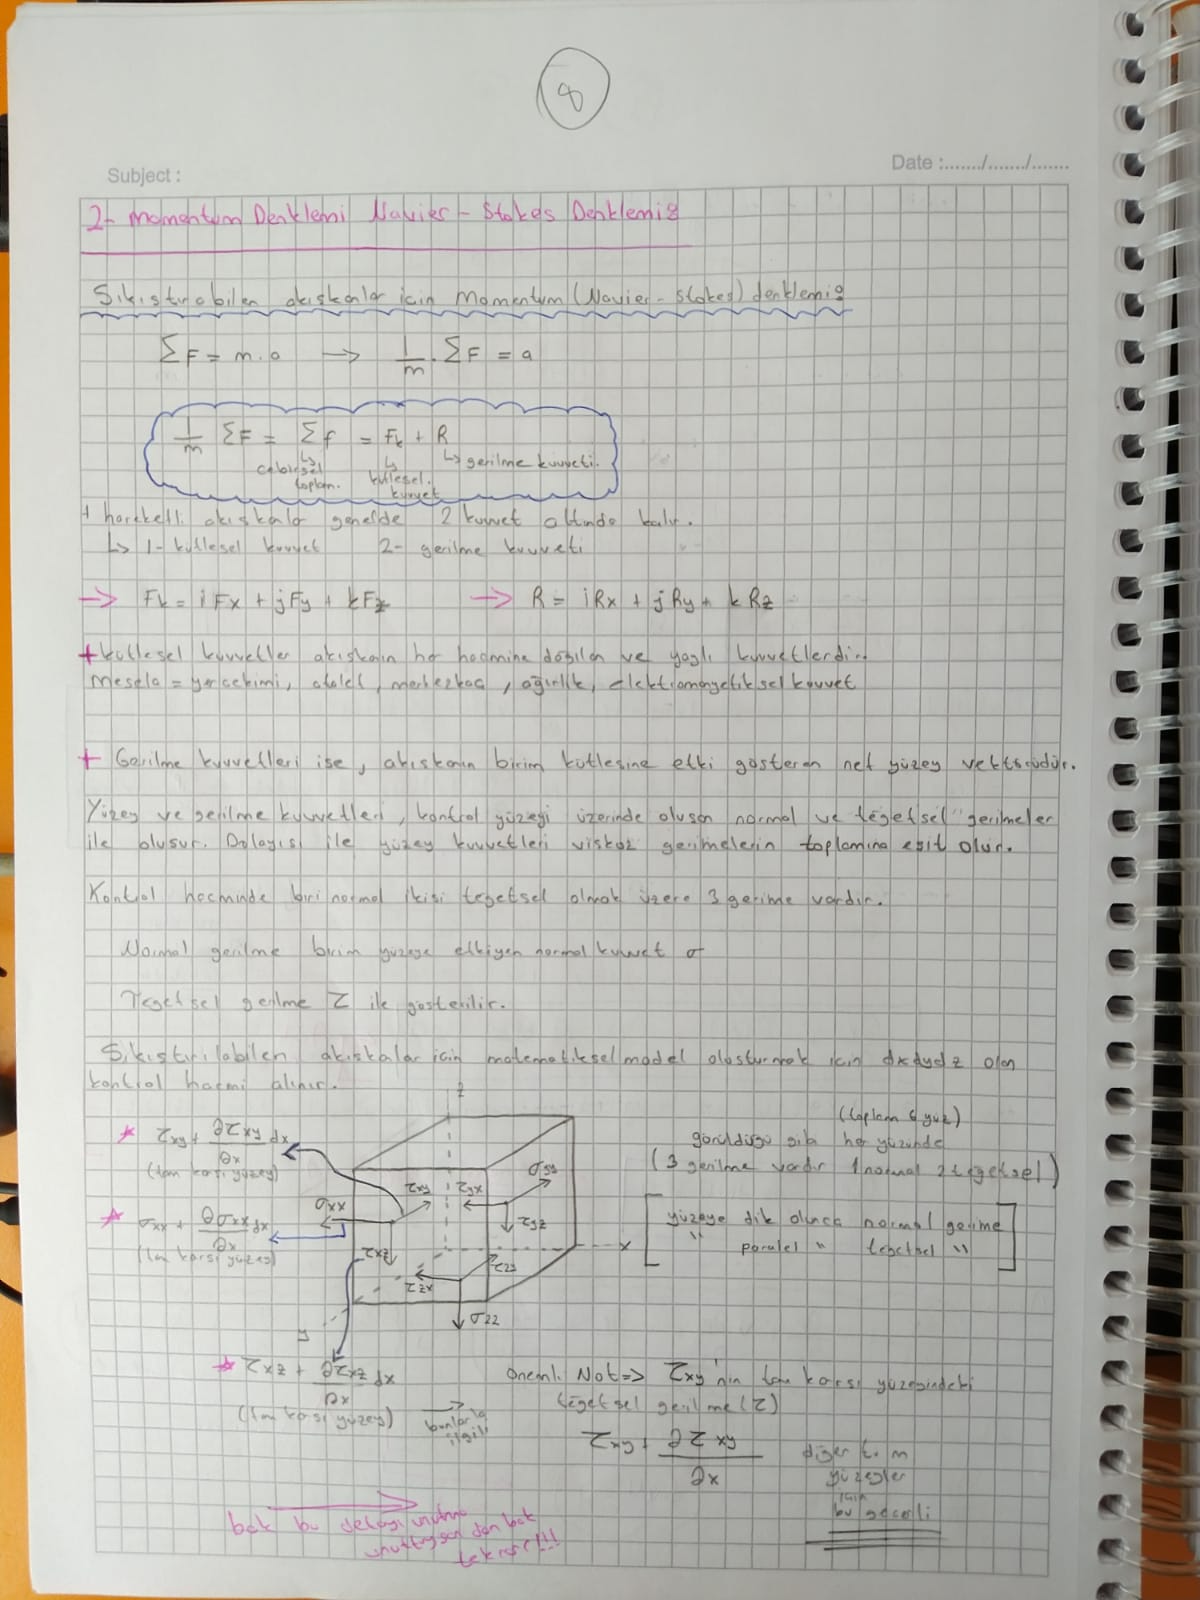 8
Subject :
Date :......./......./.......
2- Momentum Denklemi Navier - Stokes Denklemi:
Sıkıştırabilen akışkanlar için Momentum (Navier - Stokes) denklemi:
ΣF = m.a → 1/m . ΣF = a
1/m ΣF = Σf = Fk + R
↳ cebirsel toplam. ↳ kütlesel kuvvet ↳ gerilme kuvveti.
+ hareketli akışkanlar genelde 2 kuvvet altında kalır.
↳ 1- kütlesel kuvvet 2- gerilme kuvveti
→ Fk = iFx + jFy + kFz → R = iRx + jRy + kRz
+ kütlesel kuvvetler akışkanın her hacmine dağılan ve yaylı kuvvetlerdir.
Mesela = yerçekimi, atalet, merkezkaç, ağırlık, elektromanyetiksel kuvvet
+ Gerilme kuvvetleri ise, akışkanın birim kütlesine etki gösteren net yüzey vektörüdür.
Yüzey ve gerilme kuvvetleri, kontrol yüzeyi üzerinde oluşan normal ve teğetsel gerilmeler
ile oluşur. Dolayısı ile yüzey kuvvetleri viskoz gerilmelerin toplamına eşit olur.
Kontrol hacminde biri normal ikisi teğetsel olmak üzere 3 gerilme vardır.
Normal gerilme birim yüzeye etkiyen normal kuvvet σ
Teğetsel gerilme τ ile gösterilir.
Sıkıştırılabilen akışkalar için matematiksel model oluşturmak için dxdydz olan
kontrol hacmi alınır.
z
* τxy + ∂τxy/∂x dx
(tam karşı yüzey)
(toplam 6 yüz)
görüldüğü gibi her yüzünde
(3 gerilme vardır 1 normal 2 teğetsel)
σyy
τxy τyx
σxx
τyz
* σxx + ∂σxx/∂x dx
(tam karşı yüzey)
[yüzeye dik olunca normal gerilme
" paralel " teğetsel "]
x
τxz
τzy
τzx
σzz
y
* τxz + ∂τxz/∂x dx
(tam karşı yüzey)
→ bunlarla ilgili
Önemli Not => τxy'nin tam karşı yüzeyindeki
teğetsel gerilme (τ)
τxy + ∂τxy/∂x
diğer tüm
yüzeyler
için
bu geçerli
bak bu detayı unutma
unuttuysan dön bak
tekrar!!!